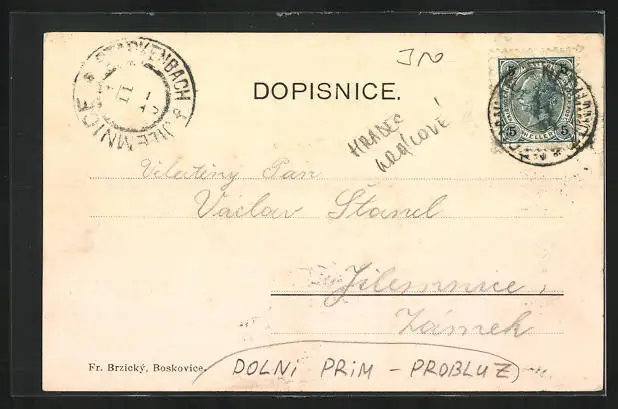 JN
STARKENBACH * JILEMNICE *
DOPISNICE.
5 HELLER 5
HRADEC
KRÁLOVÉ!
Veletěný Pan
Václav Štancl
Jilemnice,
Zámek
Fr. Brzický, Boskovice.
DOLNÍ PŘIM - PROBLUZ